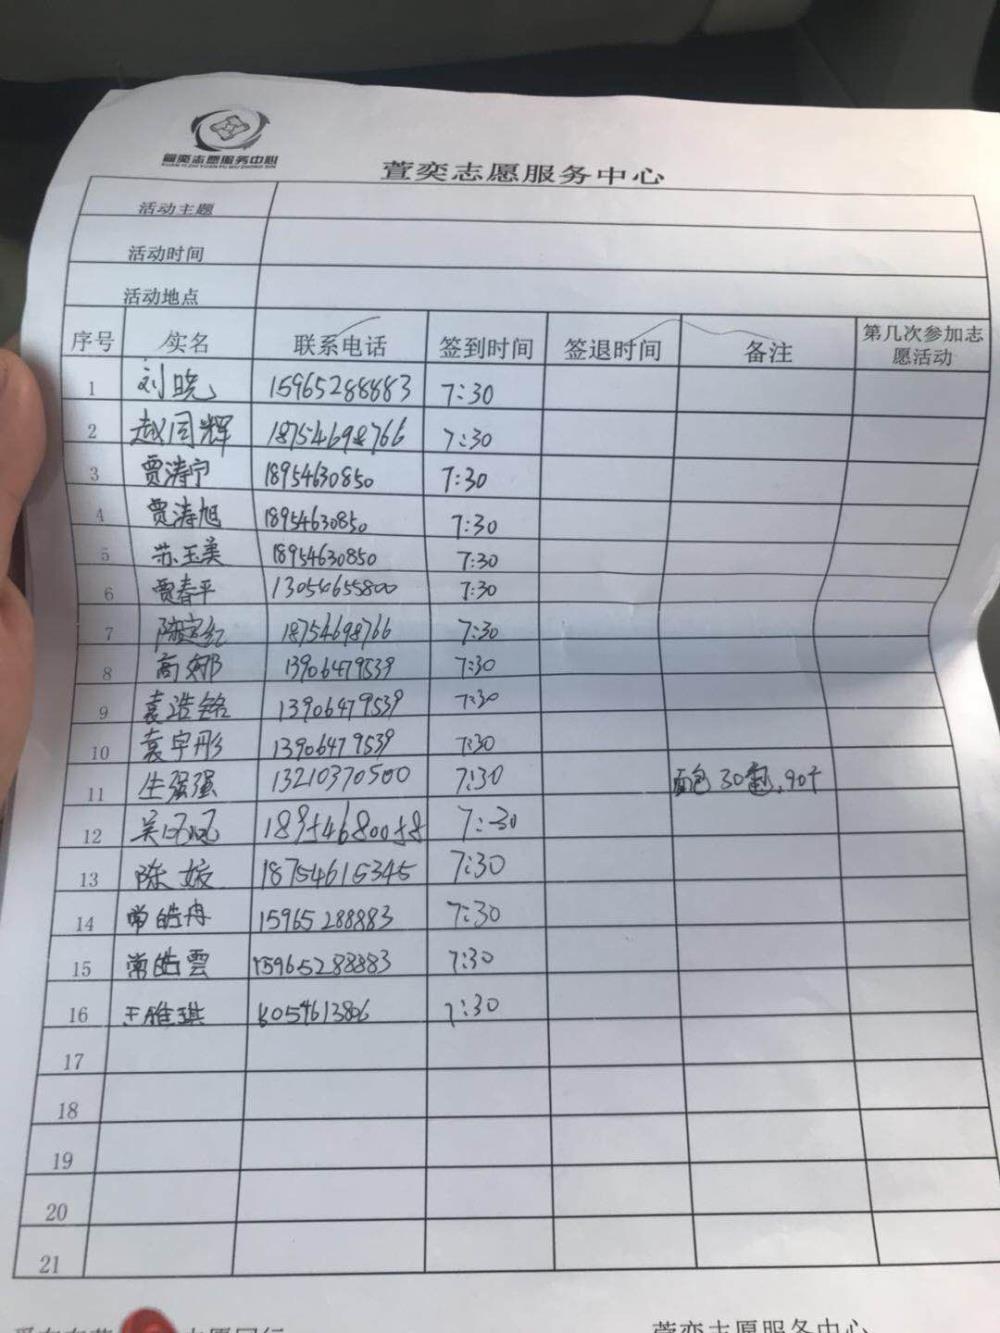 萱奕志愿服务中心
XUAN YI ZHI YUAN FU WU ZHONG XIN
萱奕志愿服务中心
活动主题
活动时间
活动地点
序号 实名 联系电话 签到时间 签退时间 备注 第几次参加志愿活动
1 刘晓 15965288883 7:30
2 赵国辉 18754698766 7:30
3 贾涛宁 18954630850 7:30
4 贾涛旭 18954630850 7:30
5 苏玉美 18954630850 7:30
6 贾春平 13054655800 7:30
7 陈红 18754698766 7:30
8 高娜 13906479539 7:30
9 袁浩铭 13906479539 7:30
10 袁宇彤 13906479539 7:30
11 生强强 13210370500 7:30 面包30 90个
12 吴凤 7:30
13 陈媛 18754615345 7:30
14 常皓冉 15965288883 7:30
15 常皓雲 15965288883 7:30
16 王雅琪 7:30
17
18
19
20
21
萱奕志愿服务中心